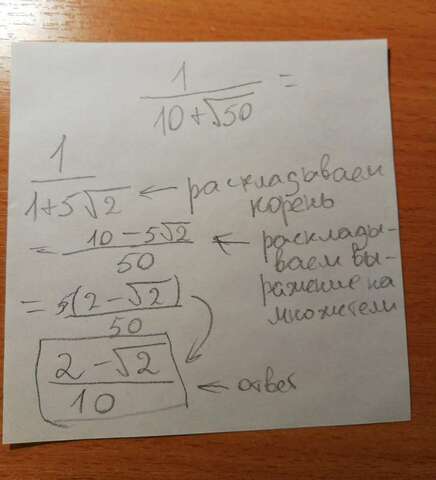 1
10+√50 =
1
1+5√2 ← раскладываем
корень
= 10-5√2 ← расклады-
50 ваем вы-
ражение на
множетели
= 5(2-√2)
50
2-√2
10 ← ответ